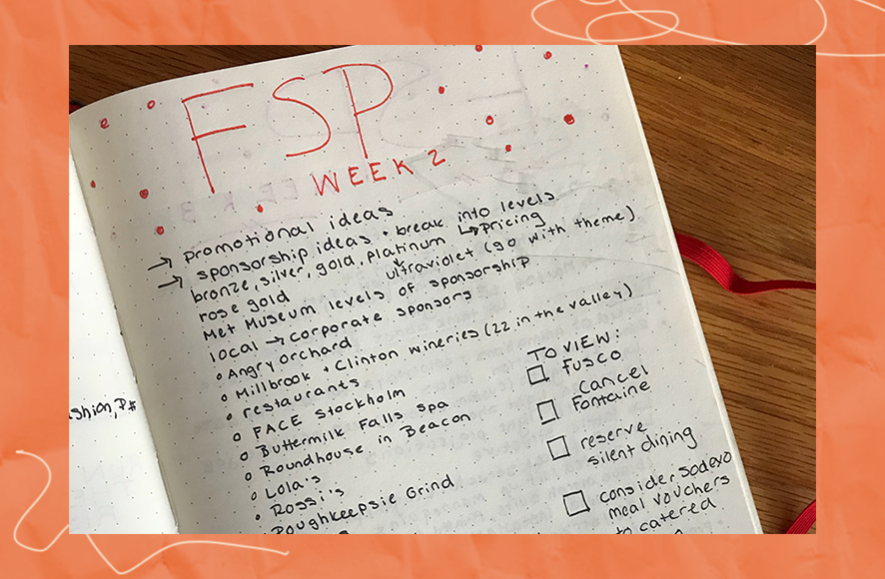 FSP
WEEK 2
→ promotional ideas
→ sponsorship ideas + break into levels
bronze, silver, gold, platinum ↳ pricing
rose gold ultraviolet (go with theme)
Met Museum levels of sponsorship
local → corporate sponsors
o Angry orchard
o Millbrook + Clinton wineries (22 in the valley)
o restaurants
o FACE Stockholm
o Buttermilk Falls Spa
o Roundhouse in Beacon
o Lola's
o Rossi's
Poughkeepsie Grind
TO VIEW:
□ FUSCO
cancel
□ Fontaine
□ reserve
silent dining
□ consider sodexo
meal vouchers
to catered